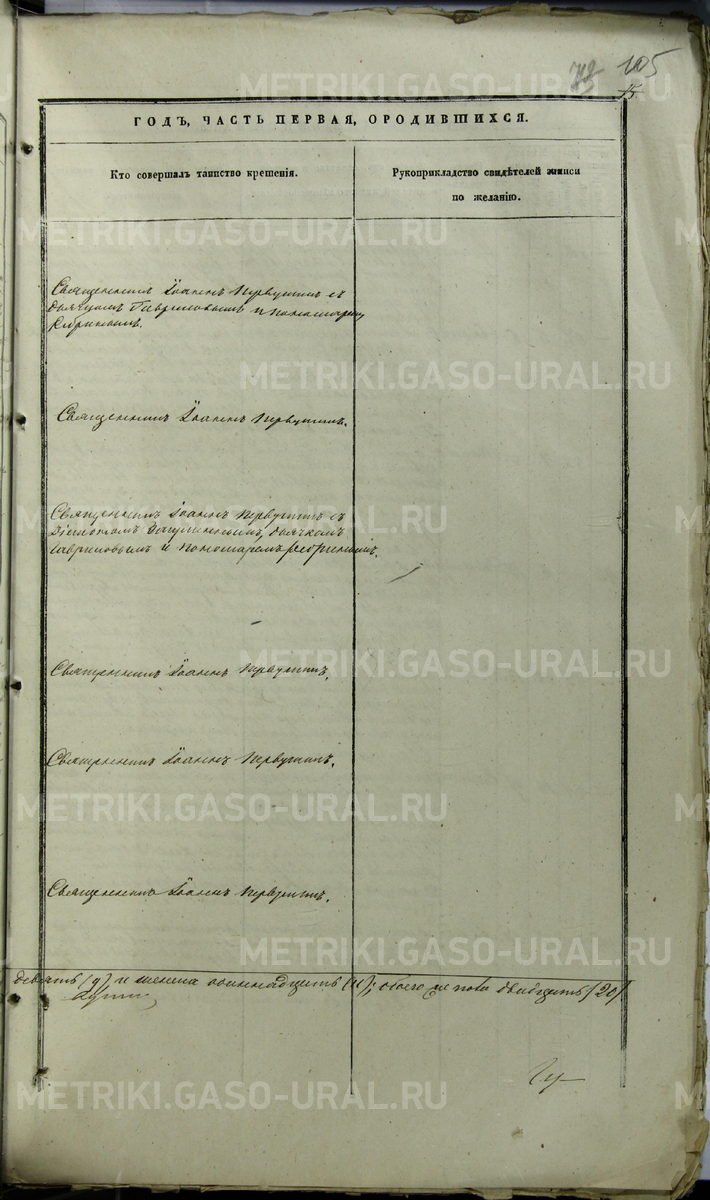 105
15.
ГОДЪ, ЧАСТЬ ПЕРВАЯ, О РОДИВШИХСЯ.
Кто совершалъ таинство крещенія.
Рукоприкладство свидѣтелей записи
по желанію.
Священникъ Іоаннъ Первушинъ съ
дьячкомъ Гавриловымъ и пономаремъ
Священникъ Іоаннъ Первушинъ.
Священникъ Іоаннъ Первушинъ съ
Діакономъ дьячкомъ
Гавриловымъ и пономаремъ
Священникъ Іоаннъ Первушинъ.
Священникъ Іоаннъ Первушинъ.
Священникъ Іоаннъ Первушинъ.
девять (9) и женска одиннадцать (11); обоего же пола двадцать (20)
METRIKI.GASO-URAL.RU